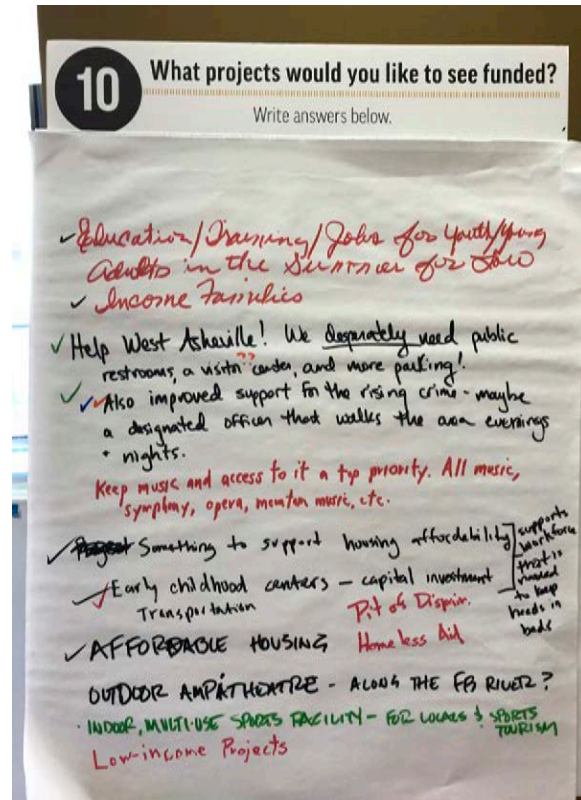 10
What projects would you like to see funded?
Write answers below.
Education/Training/Jobs for Youth/Young
Adults in the Summer for Low
Income Families
Help West Asheville! We desparately need public
??
restrooms, a visitor center, and more parking!
Also improved support for the rising crime - maybe
a designated officer that walks the area evenings
+ nights.
Keep music and access to it a top priority. All music,
symphony, opera, mountain music, etc.
Something to support housing affordability
Early childhood centers - capital investment
supports
workforce
that is
needed
to keep
heads in
beds
Transportation
Pit of Dispair.
AFFORDABLE HOUSING
Homeless Aid
OUTDOOR AMPATHEATRE - ALONG THE FB RIVER?
· INDOOR, MULTI-USE SPORTS FACILITY - FOR LOCALS & SPORTS
TOURISM
Low-income Projects